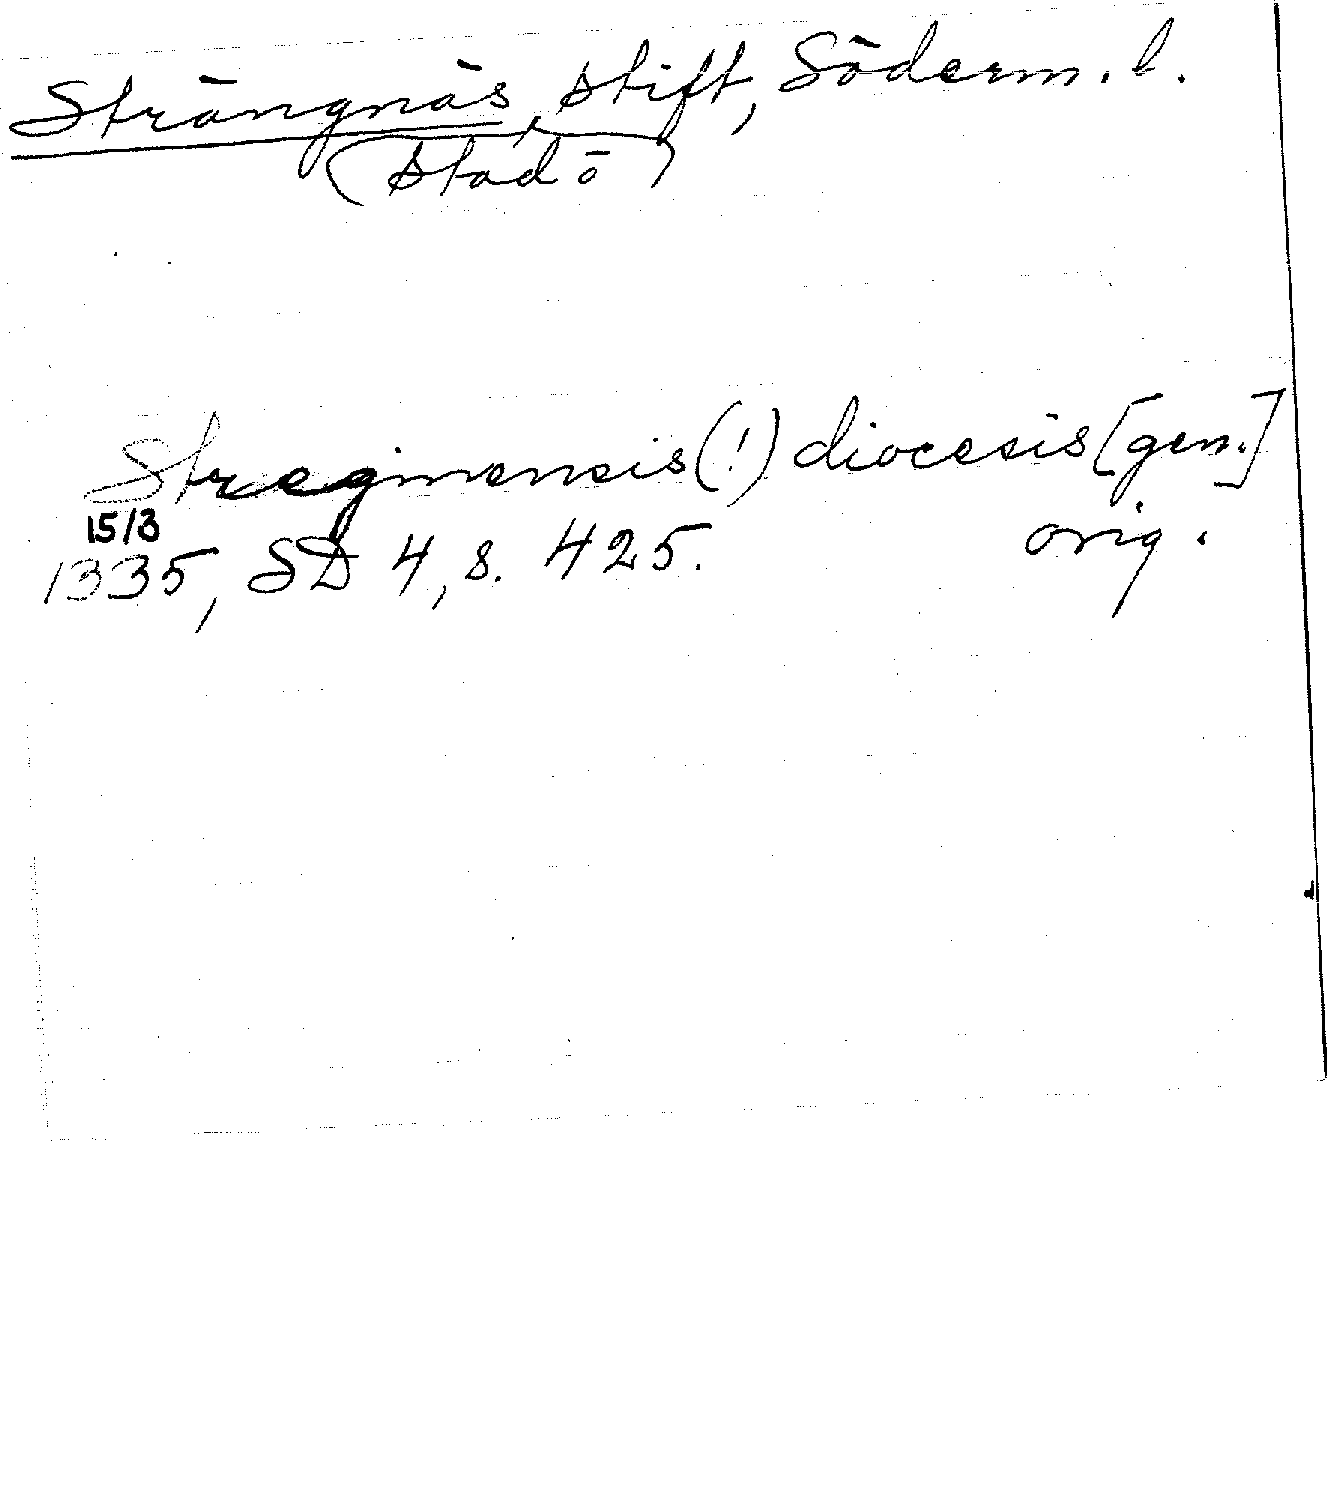 Strängnäs, stift, Söderm. l.
(stad ö)
Streginensis (!) diocesis [gen.]
15/3
1335, SD 4, s. 425. orig.